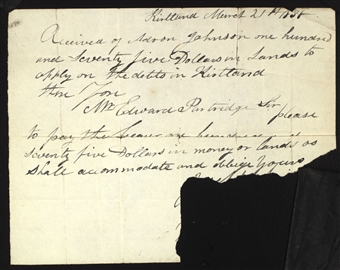 Kirtland March 21st
Received of Aaron Johnson one hundred
and Seventy five Dollars in Lands to
apply on the debts in Kirtland
Mr Edward Partridge Sir
please
to pay the bearer one hundred
Seventy five Dollars in money or lands as
shall accommodate and oblige yours